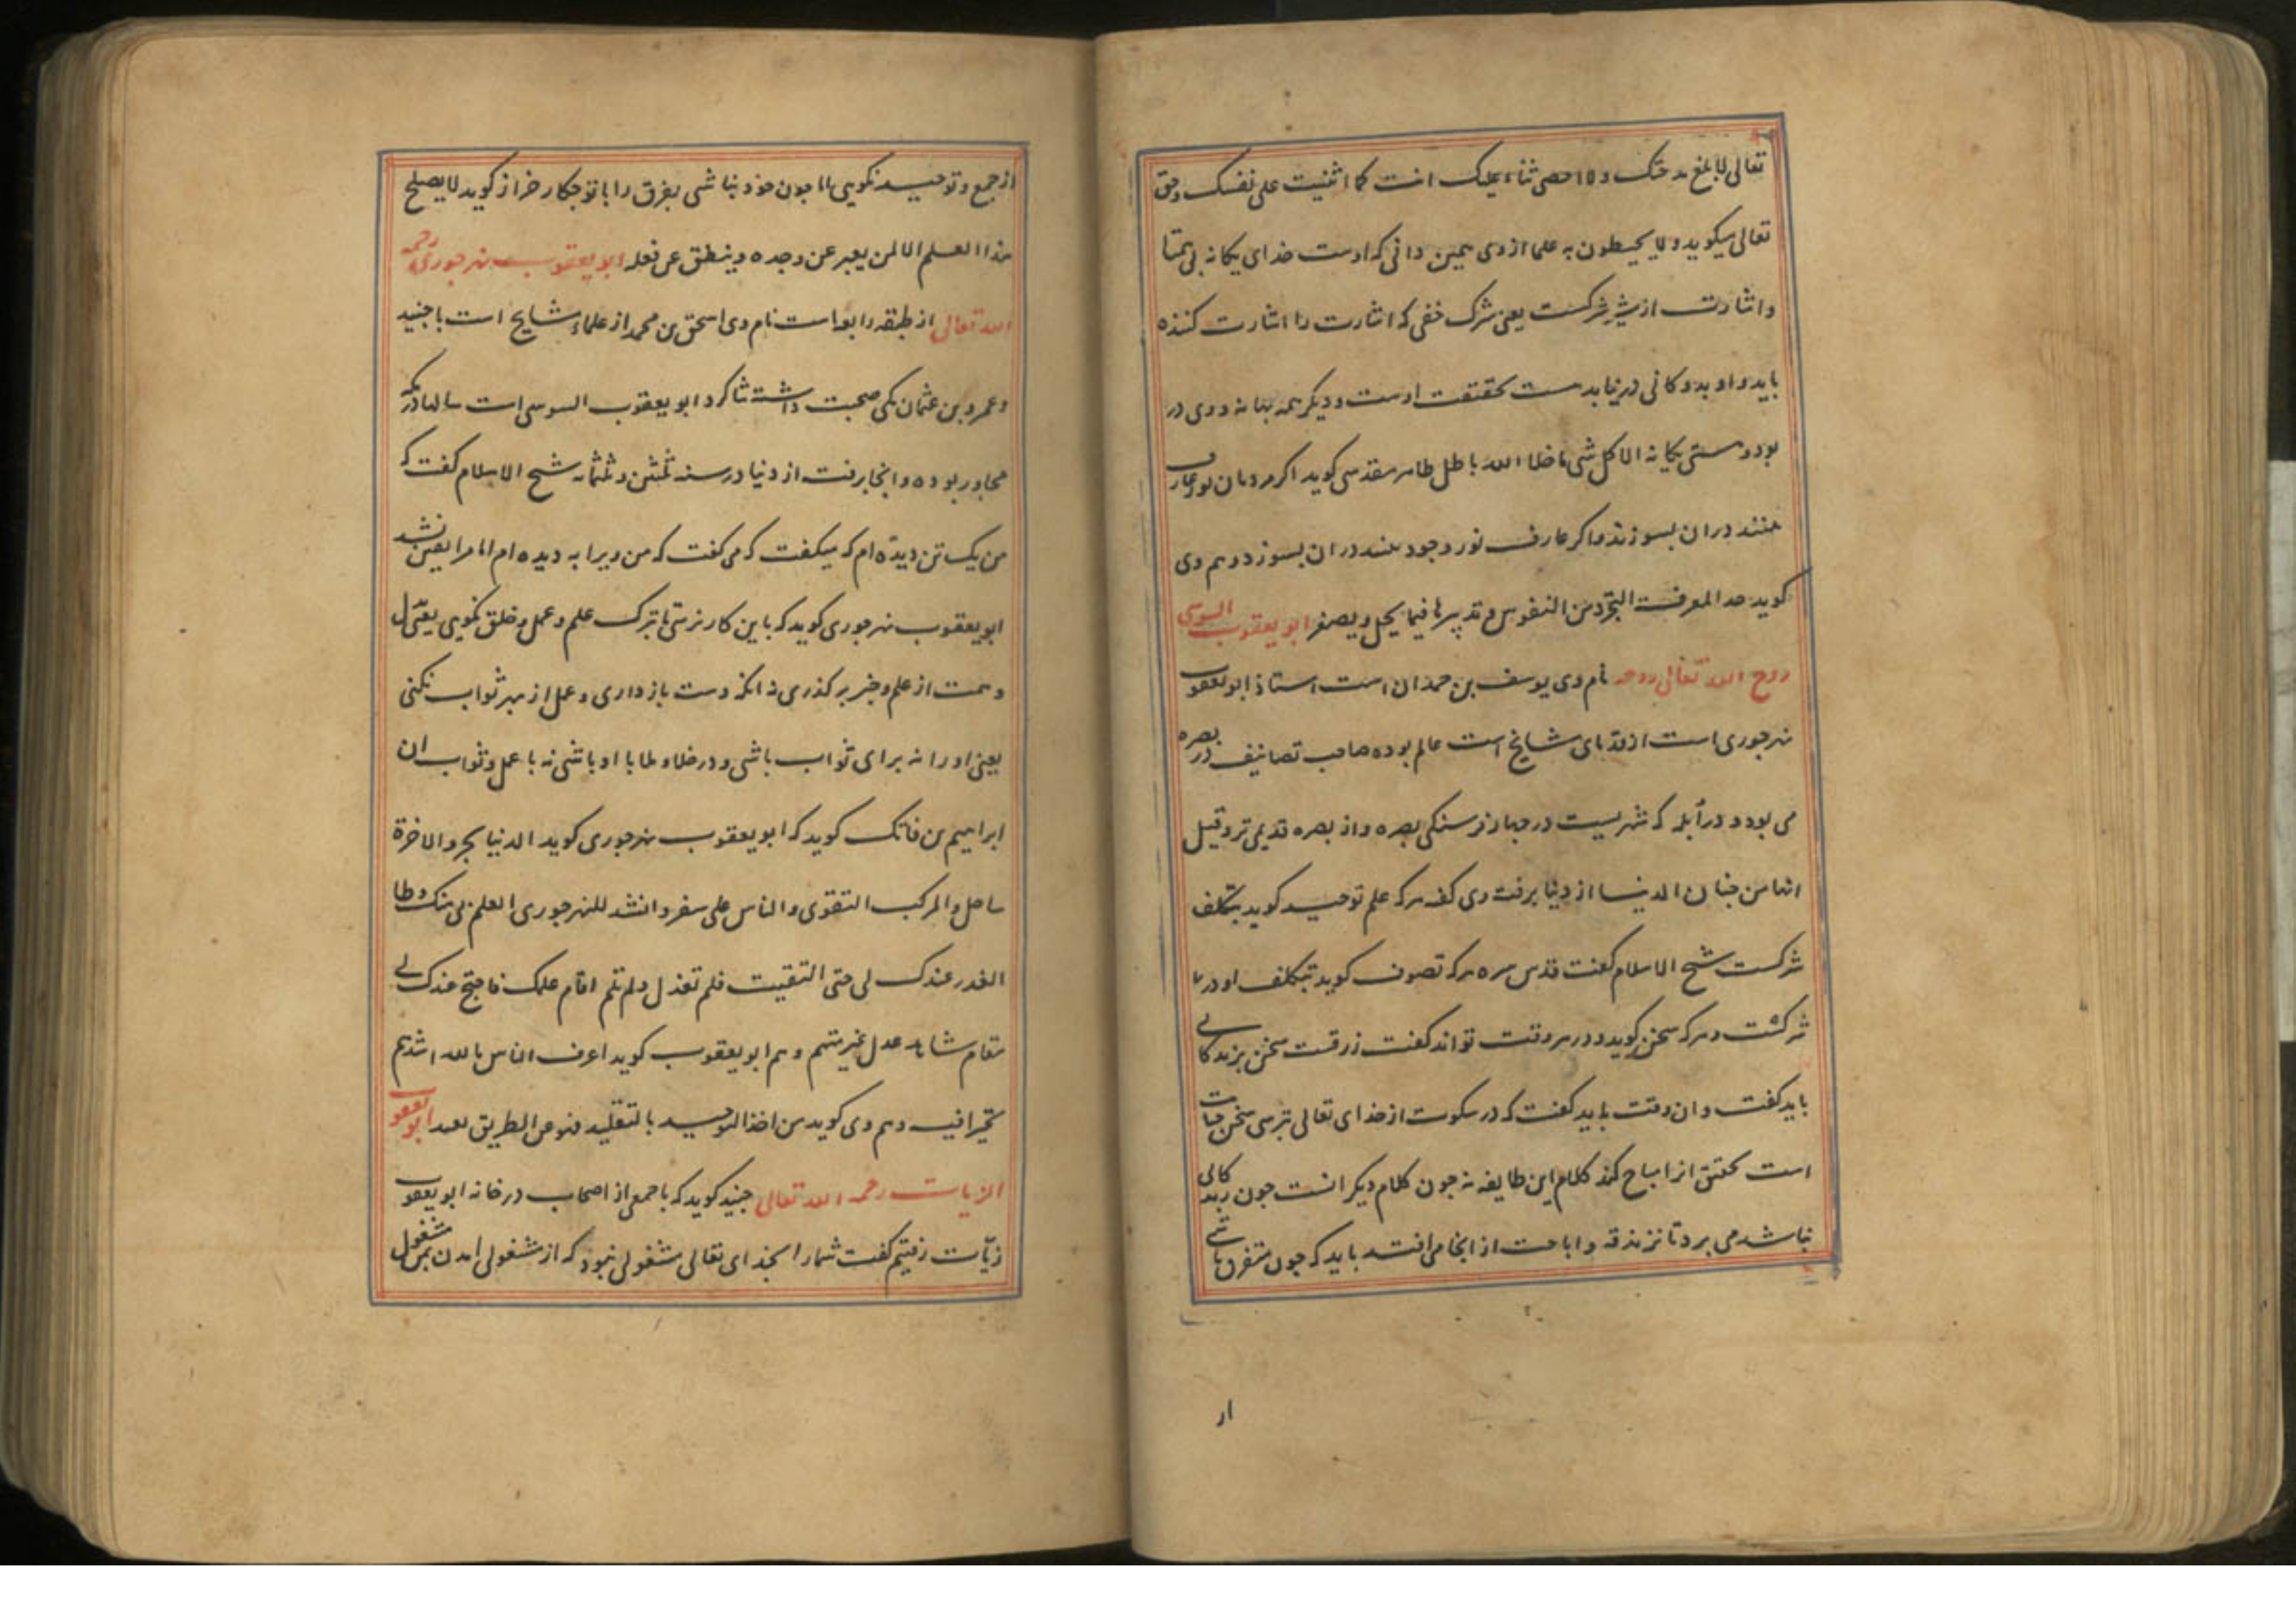 تعالی لا ابلغ مدحتک و لا احصی ثناء علیک انت کما اثنیت علی نفسک و حق
تعالی میکوید و لا یحیطون به علما از وی همین دانی که اوست خدای یکانه بی همتا
و اشارت از شرکست یعنی شرک خفی که اشارت را اشارت کننده
باید و او بدوکانی در نیاید هست بحقیقت اوست و دیکر همه بهانه و وی در
بود و هستی یکانه الا کل شی ما خلا الله باطل طاهر مقدسی کوید اکر مردمان نور عارف
بینند دران بسوزند و اکر عارف نور وجود بیند دران بسوزد و هم وی
کوید حد المعرفت التجرد من النفوس و تدبیرها فیما یجل و یصغر ابو یعقوب السوسی
روح الله تعالی روحه نام وی یوسف بن حمدان است استاذ ابو یعقوب
نهرجوری است از قدمای مشایخ است عالم بوده صاحب تصانیف در بصره
می بود و در ابله که شهریست در چهار فرسنکی بصره و از بصره قدیمی تر و قیل
انها من جنان الدنیا از دنیا برفت وی کفته هرکه علم توحید کوید بتکلف
شرکست شیخ الاسلام کفت قدس سره هرکه تصوف کوید بتکلف او در
شرکست و هرکه سخن کوید و در هر وقت تواند کفت زرقست سخن بزندکانی
باید کفت و ان وقت باید کفت که در سکوت از خدای تعالی ترسی سخن جنایت
است تحقیق انرا مباح کند کلام این طایفه نه چون کلام دیکر انست چون زندکانی
نباشد می برد تا بزندقه و اباحت از اینجا می افتد باید که چون متفرق باشی
ار
از جمع و توحید نکویی اما چون خود نباشی بفرق را با تو چکار خراز کوید لا یصلح
هذا العلم الا لمن یعبر عن وجده و ینطق عن فعله ابو یعقوب نهرجوری رحمه
الله تعالی از طبقه رابعه است نام وی اسحق بن محمد از علماء مشایخ است با جنید
و عمرو بن عثمان مکی صحبت داشته شاکرد ابو یعقوب السوسی است سالها در مکه
مجاور بوده و انجا برفت از دنیا در سنه ثلثین و ثلثمائه شیخ الاسلام کفت که
من یک تن دیده ام که میکفت که می کفت که من ویرا به دیده ام اما مرا یقین نشد
ابو یعقوب نهرجوری کوید که باین کار نرسی تا ترک علم و عمل و خلق نکویی یعنی دل
و همت از علم و خبر برکذری نه انکه دست باز داری و عمل از بهر ثواب نکنی
یعنی او را نه برای ثواب باشی و در خلا و ملا با او باشی نه با عمل و ثواب ان
ابراهیم بن فاتک کوید که ابو یعقوب نهرجوری کوید الدنیا بحر و الاخرة
ساحل و المرکب التقوی و الناس علی سفر و انشد للنهرجوری العلم بی منک وطا
العذر عندک لی حتی التقیت فلم تعذل و لم تلم اقام علمک فاحتج عندک لی
مقام شاهد عدل غیر متهم و هم ابو یعقوب کوید اعرف الناس بالله اشدهم
تحیرا فیه و هم وی کوید من اخذ التوحید بالتقلید فهو عن الطریق بعید ابو یعقوب
الزیات رحمه الله تعالی جنید کوید که با جمعی از اصحاب در خانه ابو یعقوب
زیات رفتیم کفت شما را بخدای تعالی مشغولی نبود که از مشغولی امدن بمن مشغول